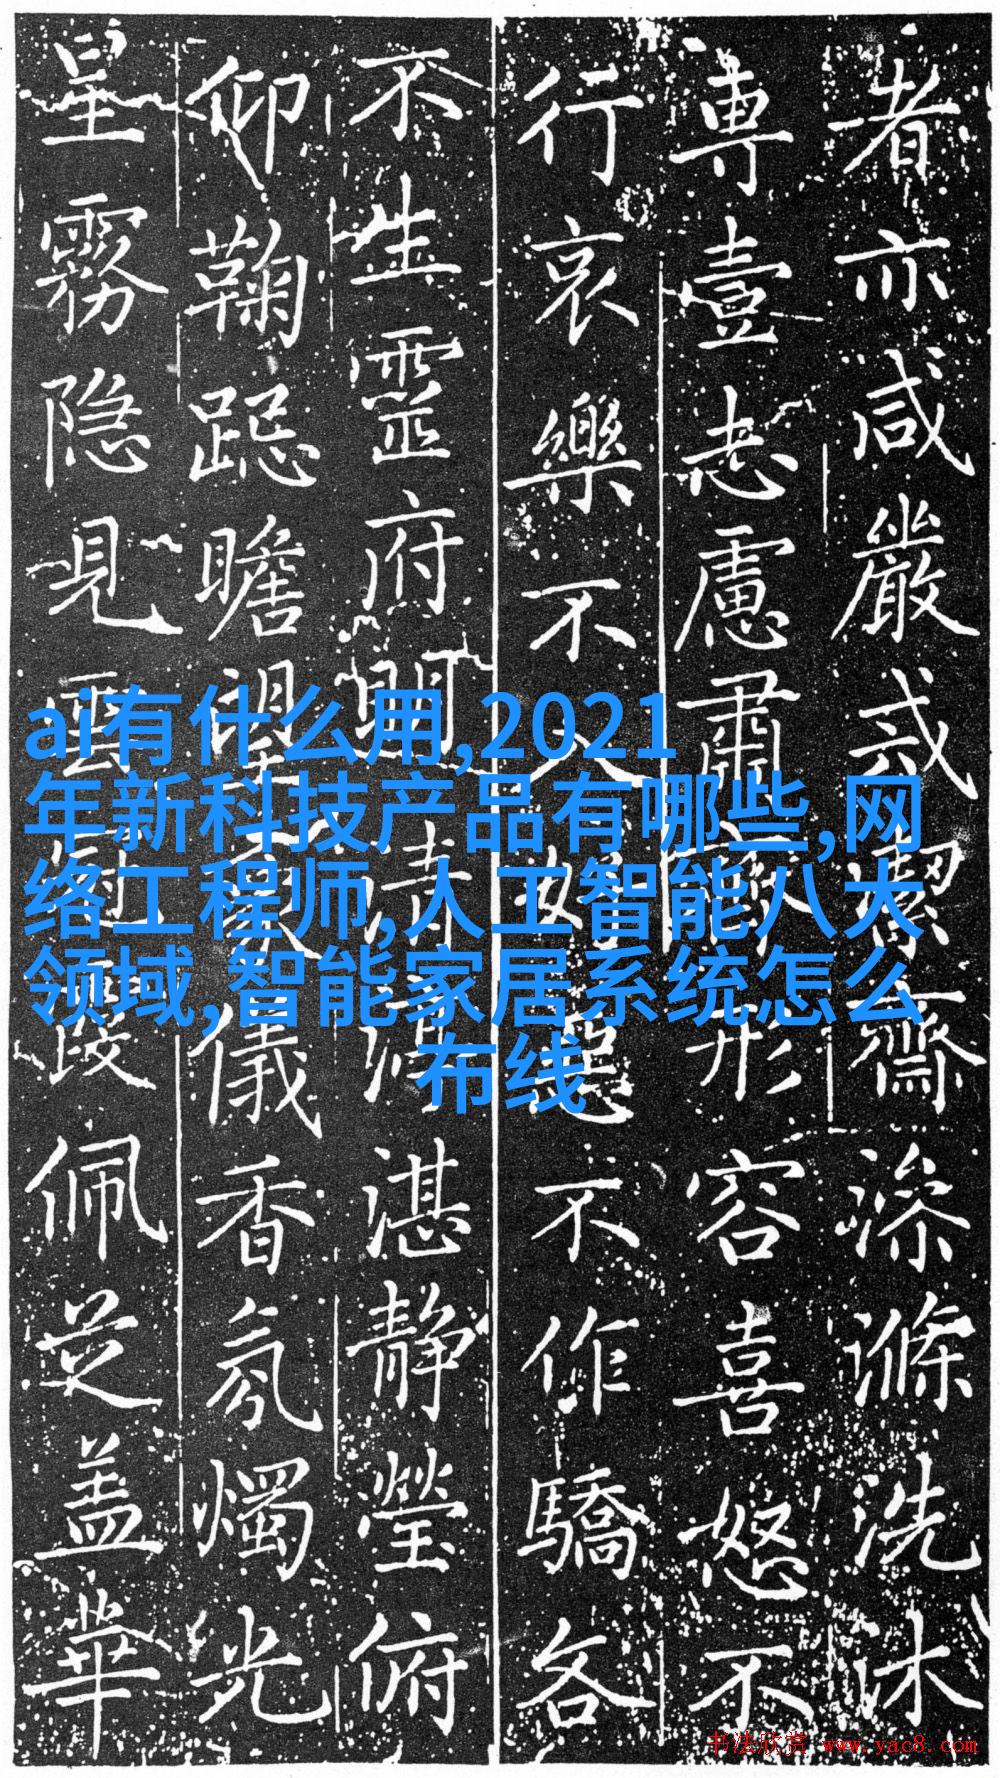 者亦咸嚴戒潔齋澡滌洗沐
專壹志慮肅形容喜怒不
行哀樂不入好惡不作驕各
不生靈府明清湛静瑩俯
仰鞠跽瞻望儀香氛燭光
星霧隐見雲佩芝盖華
ai有什么用,2021
年新科技产品有哪些,网
络工程师,人工智能八大
领域,智能家居系统怎么
布线
书法欣赏 www.yac8.com